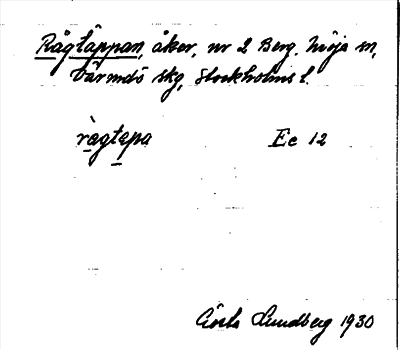 Rågtäppan, åker, nr 2 Berg, Möja sn,
Värmdö skg, Stockholms l.
rågtepa Ec 12
Gösta Lundberg 1930